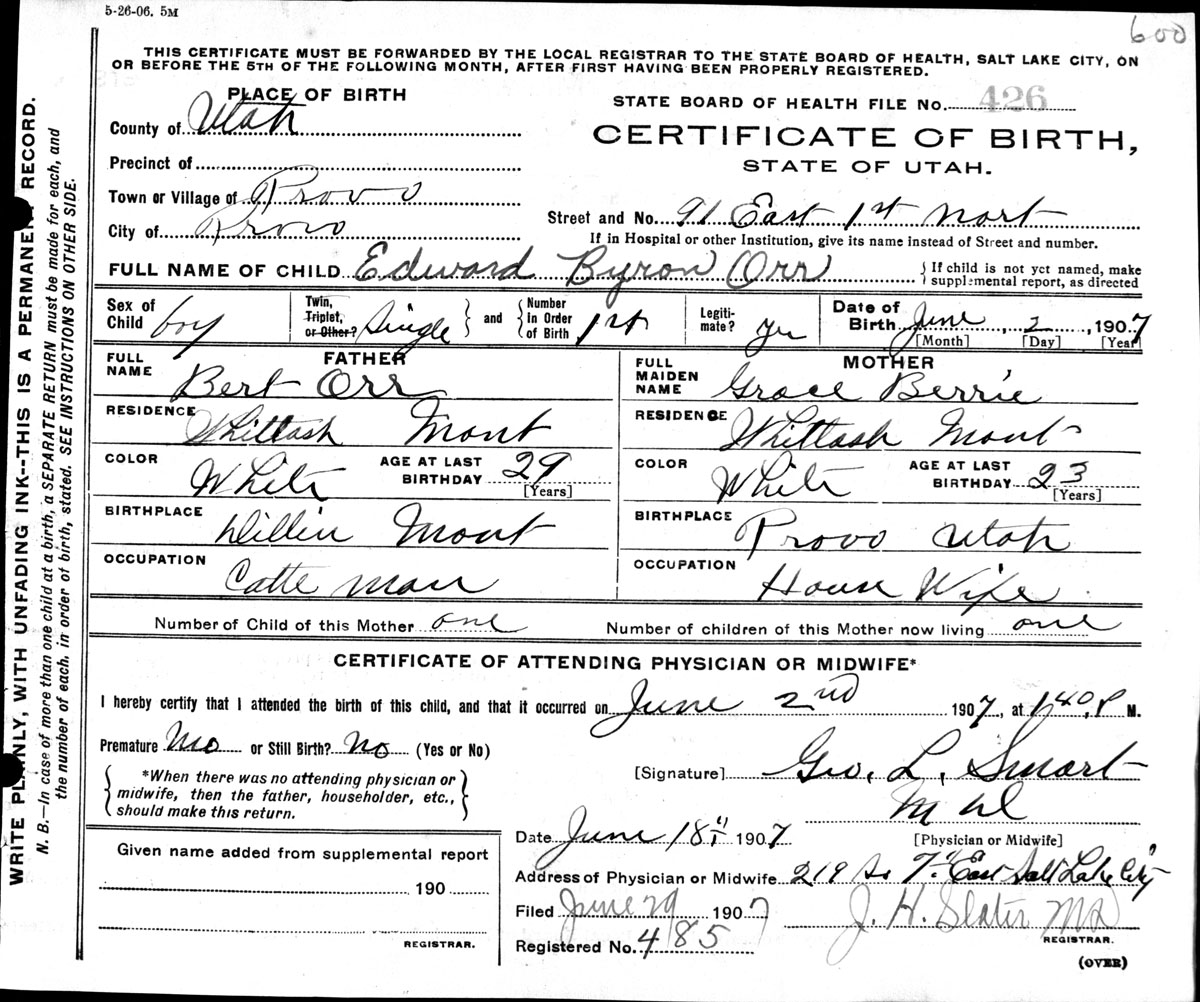 5-26-06. 5M
600
THIS CERTIFICATE MUST BE FORWARDED BY THE LOCAL REGISTRAR TO THE STATE BOARD OF HEALTH, SALT LAKE CITY, ON
OR BEFORE THE 5TH OF THE FOLLOWING MONTH, AFTER FIRST HAVING BEEN PROPERLY REGISTERED.
WRITE PLAINLY, WITH UNFADING INK--THIS IS A PERMANENT RECORD.
N. B.—In case of more than one child at a birth, a SEPARATE RETURN must be made for each, and
the number of each, in order of birth, stated. SEE INSTRUCTIONS ON OTHER SIDE.
PLACE OF BIRTH
County of Utah
Precinct of
Town or Village of Provo
City of Provo
STATE BOARD OF HEALTH FILE No. 426
CERTIFICATE OF BIRTH,
STATE OF UTAH.
Street and No. 91 East 1st Nort
If in Hospital or other Institution, give its name instead of Street and number.
FULL NAME OF CHILD Edward Byron Orr
If child is not yet named, make
supplemental report, as directed
Sex of
Child boy
Twin,
Triplet,
or Other? Single
and
Number
in Order
of Birth 1st
Legiti-
mate? yes
Date of
Birth June, 2, 1907
[Month] [Day] [Year]
FATHER
FULL
NAME Bert Orr
RESIDENCE Whittash Mont
COLOR White
AGE AT LAST
BIRTHDAY 29
[Years]
BIRTHPLACE Dillin Mont
OCCUPATION Catte man
MOTHER
FULL
MAIDEN
NAME Grace Berrie
RESIDENCE Whittash Mont
COLOR White
AGE AT LAST
BIRTHDAY 23
[Years]
BIRTHPLACE Provo Utah
OCCUPATION House Wife
Number of Child of this Mother one
Number of children of this Mother now living one
CERTIFICATE OF ATTENDING PHYSICIAN OR MIDWIFE*
I hereby certify that I attended the birth of this child, and that it occurred on June 2nd 1907, at 1 40 P M.
Premature No or Still Birth? No (Yes or No)
*When there was no attending physician or
midwife, then the father, householder, etc.,
should make this return.
[Signature] Geo. L. Smart
M D
[Physician or Midwife]
Date June 18 1907
Address of Physician or Midwife 219 So 7th East Salt Lake City
Given name added from supplemental report
190
REGISTRAR.
Filed June 29 1907
J. H. Slater MD
REGISTRAR.
Registered No. 485
(OVER)